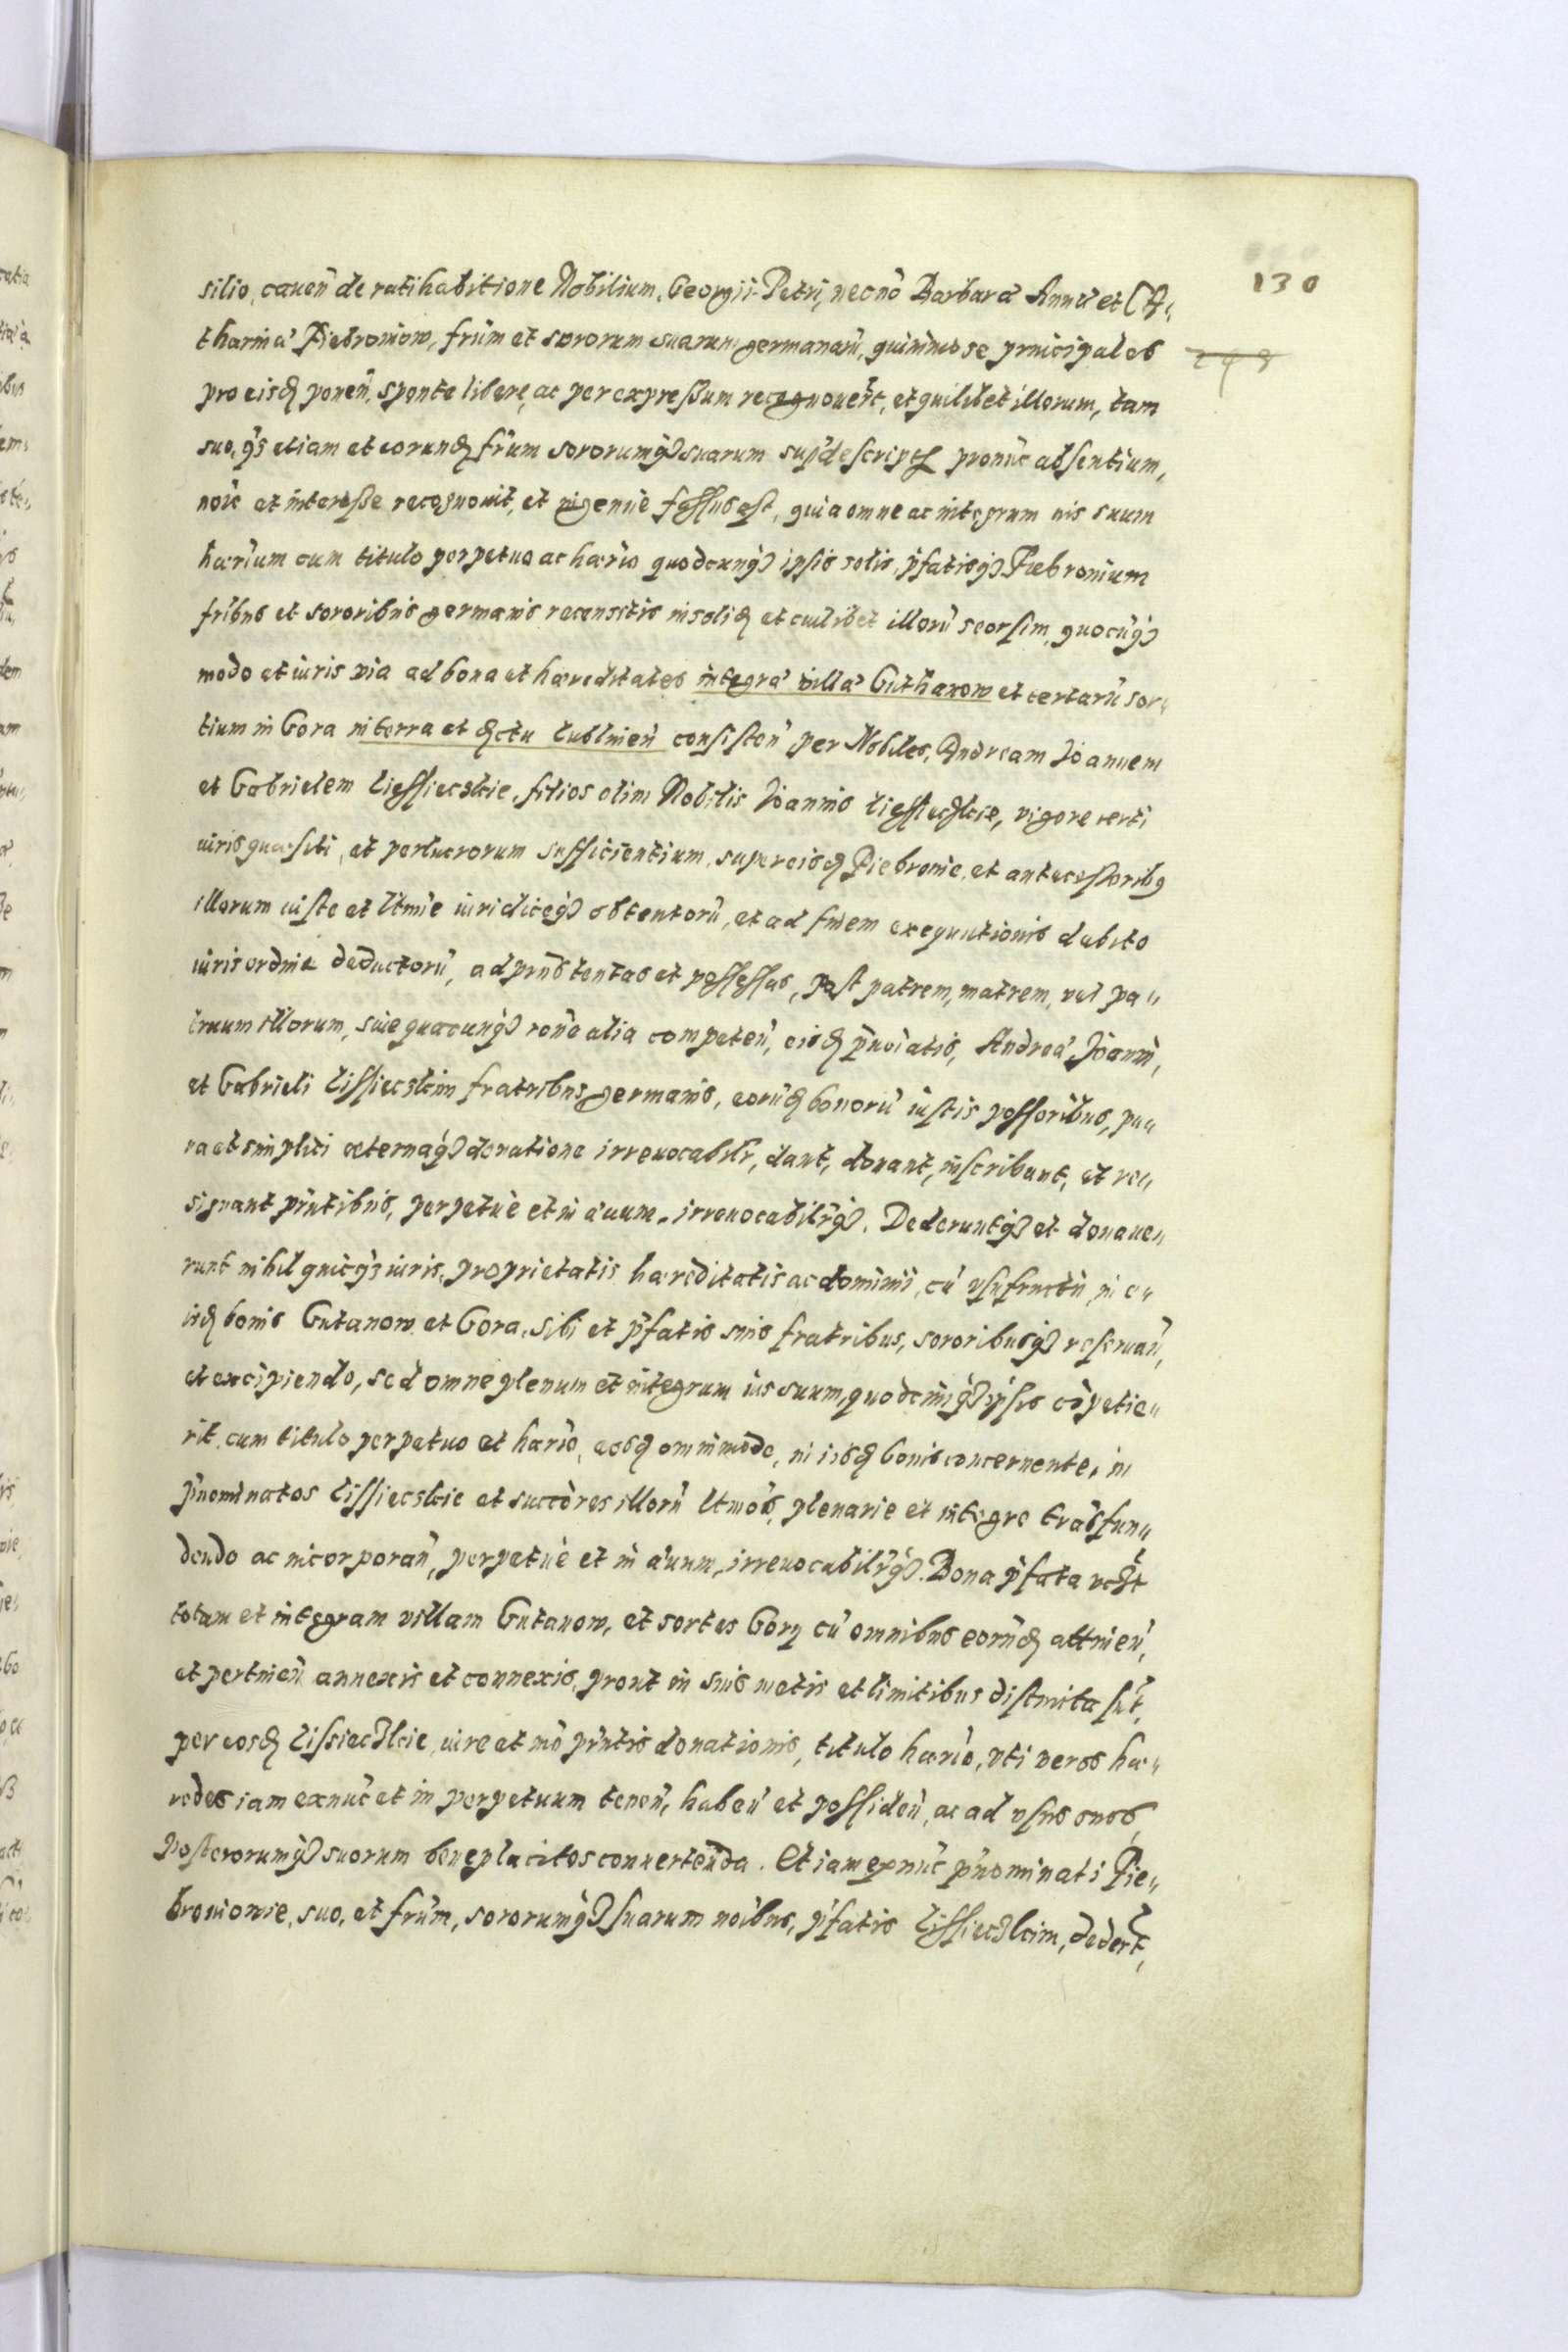 130
silio, cauen̄ de ratihabitione Nobilium, Georgii Petri, necnō Barbaræ Annæ et Ca„
tharinæ Piebroniow, frūm et sororum suarum germanarū, quinimo se principales
249
pro eisdē ponen̄, sponte libere, ac per expressum recognouerūt, et quilibet illorum, tam
suo, qʒ etiam et eorundē frūm sororumqʒ suarum supˈdescriptˈ pronūc absentium,
noīe et interesse recognouit, et ingenue fassus est, quia omne ac integrum ius suum
hærīum cum titulo perpetuo ac hærīo quodcunqʒ ipsis solis, pˈfatisqʒ Piebronium
fribus et sororibus germanis recensitis insolidˈ et cuilibet illorū seorsim, quocūqʒ
modo et iuris via ad bona et hæreditates integræ villæ Guthanow et certarū sor„
tium in Gora in terra et dctu Lublinen̄ consisten̄ per Nobiles, Andream Joannem
et Gabrielem Liessieczkie, filios olim Nobilis Joannis Liessieczkie, vigore certi
iuris quæsiti, et perlucrorum sufficientium, super eisdˈ Piebronie, et antecessoribꝰ
illorum iuste et ltmīe iuridiceqʒ obtentorū, et ad finem exequutionis debito
iuris ordine deductorū, ad prn̄s tentas et possessas, post patrem, matrem, vel pa„
truum illorum, siue quacunqʒ rōne alia competen̄, eisdˈ pˈnoīatis, Andreæ, Joanni,
et Gabrieli Lissieczkim fratribus germanis, eorūdˈ bonorū iustis possoribus, pu„
ra et simplici æternaqʒ donatione irreuocabili, dant, donant, inscribunt, et re„
signant prn̄tibus, perpetuè et in æuum, irreuocabilrˈqʒ. Dederuntqʒ et donaue„
runt nihil quicqʒ iuris, proprietatis hæreditatis ac dominii, cū vsufructu, in e„
isdˈ bonis Gutanow et Gora, sibi et pˈfatis suis fratribus, sororibusqʒ reseruan̄,
et excipiendo, sed omne plenum et integrum ius suum, quodcunqʒ ipsis cōpetie„
rit, cum titulo perpetuo et hærīo, eosdˈ omnimode, in iisdˈ bonis concernente, in
pˈnominatos Lissieczkie et succōres illorū ltmōs, plenarie et integre trāsfun„
dendo ac incorporan̄, perpetuè et in æuum, irreuocabilrˈqʒ. Bona pˈfata vdˈzt
totam et integram villam Gutanow, et sortes Gory cū omnibus eorūdˈ attinen̄,
et pertinen̄ annexis et connexis, prout in suis metis et limitibus distincta sūt,
per eosdˈ Lissieczkie, iure et mō prn̄tis donationis, titulo hærīo, vti veros hæ„
redes iam exnūc et in perpetuum tenen̄, haben̄ et possiden̄, ac ad vsus suos,
posterorumqʒ suorum beneplacitos conuertenda. Et iam exnūc pˈnominati Pie„
broniowie, suo, et frūm, sororumqʒ suarum noībus, pˈfatis Lissieczkim, dederūt,